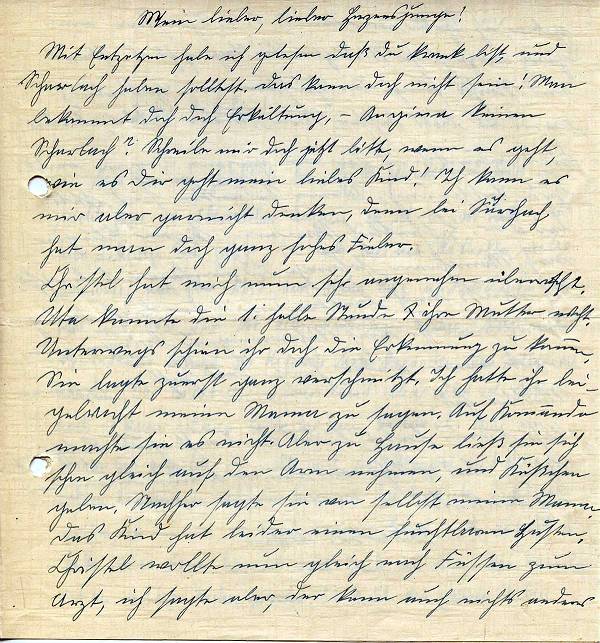 Mein lieber, lieber Herzensjunge!
Mit Entsetzen habe ich gelesen daß du krank bist, und
Scharlach haben solltest. Das kann doch nicht sein! Man
bekommt doch durch Erkältung, – Angina keinen
Scharlach? Schreibe mir doch jetzt bitte, wenn es geht,
wie es Dir geht mein liebes Kind! Ich kann es
mir aber garnicht denken, denn bei Scharlach
hat man doch ganz hohes Fieber.
Christel hat mich nun sehr angenehm überrascht.
Uta kannte die 1. halbe Stunde ihre Mutter nicht.
Unterwegs schien ihr doch die Erkennung zu kommen,
Sie sagte zuerst ganz verschmitzt. Ich hatte ihr bei-
gebracht meine Mama zu sagen. Auf Kommando
machte sie es nicht. Aber zu Hause ließ sie sich
schon gleich auf den Arm nehmen, und Küßchen
geben. Nachher sagte sie von selbst meine Mama.
Das Kind hat leider einen furchtbaren Husten.
Christel wollte nun gleich nach Füssen zum
Arzt, ich sagte aber, der kann auch nichts anders